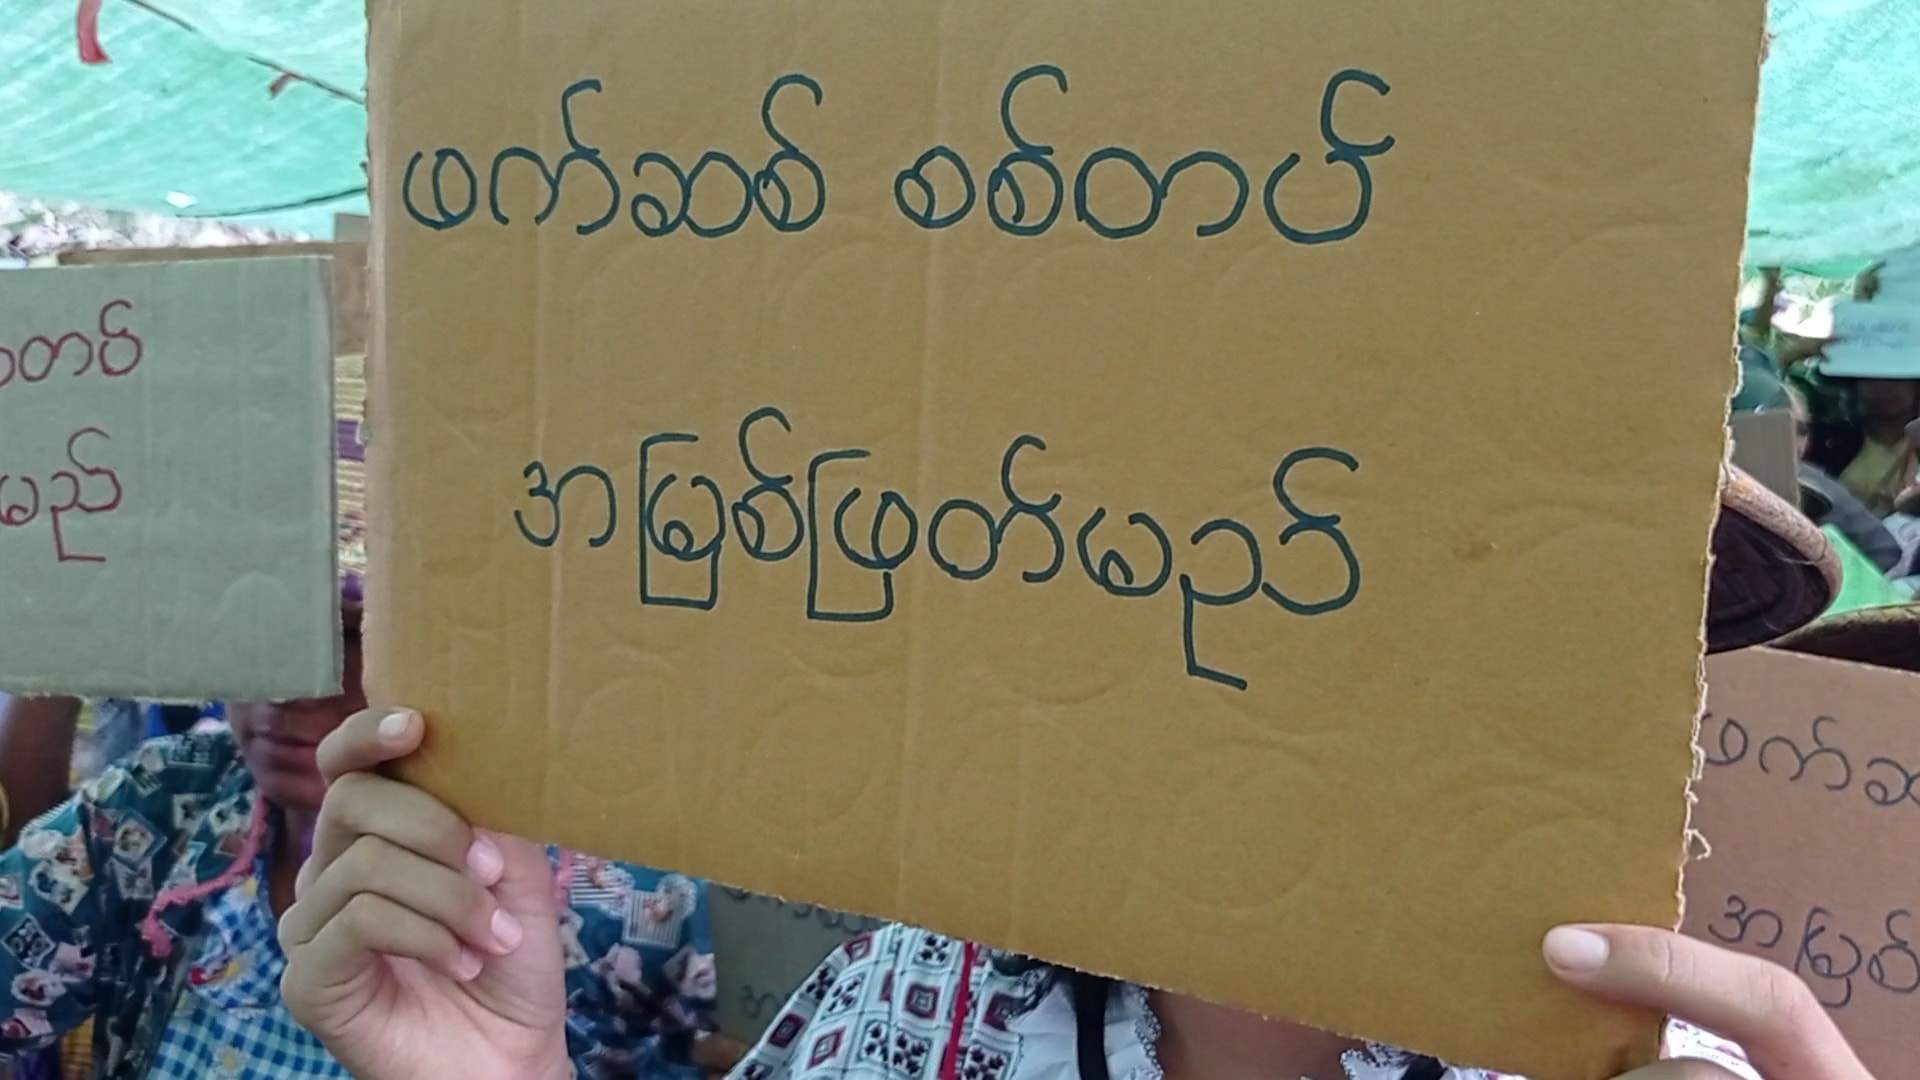 ဖက်ဆစ် စစ်တပ်
အမြစ်ဖြတ်မည်
တပ်
မည်
ဖက်ဆ
အမြစ်